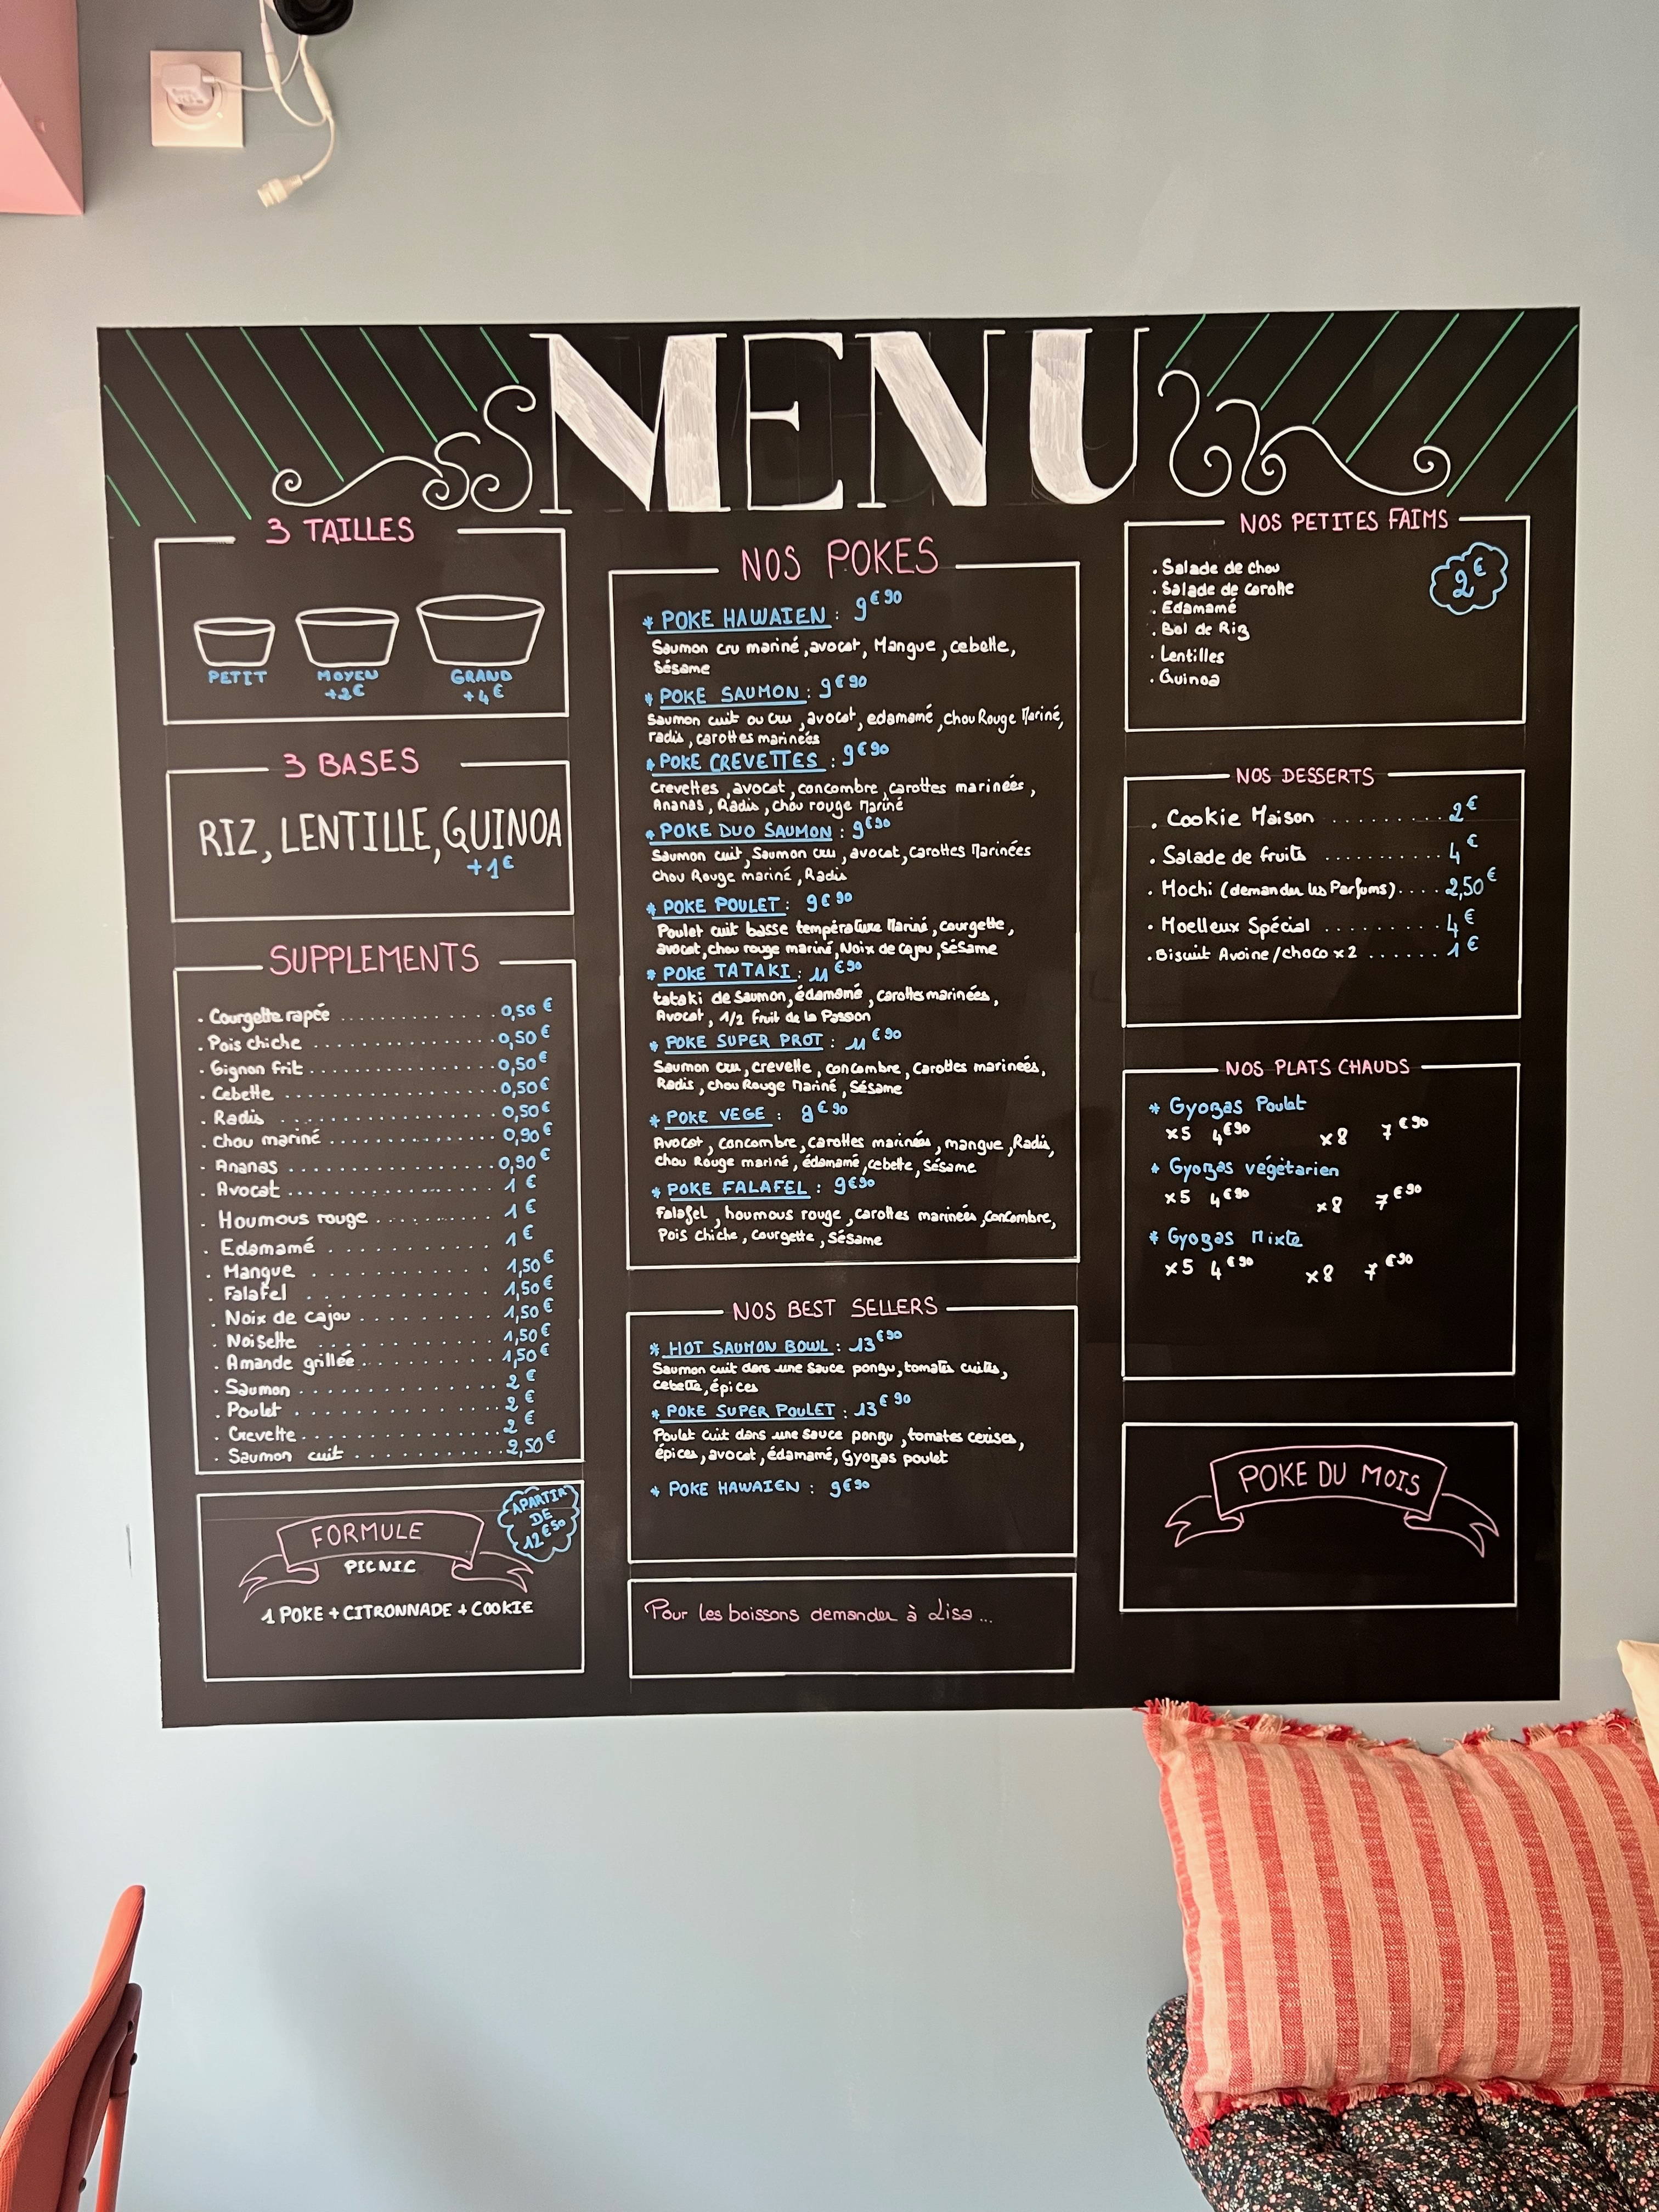 MENU
3 TAILLES
PETIT
MOYEN
+2€
GRAND
+4€
3 BASES
RIZ, LENTILLE, QUINOA
+1€
SUPPLEMENTS
. Courgette rapée ............. 0,50 €
. Pois chiche ............. 0,50 €
. Oignon frit ............. 0,50 €
. Cebette ............. 0,50 €
. Radis ............. 0,50 €
. Chou mariné ............. 0,90 €
. Ananas ............. 0,90 €
. Avocat ............. 1 €
. Houmous rouge ............. 1 €
. Edamamé ............. 1 €
. Mangue ............. 1,50 €
. Falafel ............. 1,50 €
. Noix de cajou ............. 1,50 €
. Noisette ............. 1,50 €
. Amande grillée ............. 1,50 €
. Saumon ............. 2 €
. Poulet ............. 2 €
. Crevette ............. 2 €
. Saumon cuit ............. 2,50 €
APARTIR
DE
12€50
FORMULE
PICNIC
1 POKE + CITRONNADE + COOKIE
NOS POKES
* POKE HAWAIEN : 9€90
Saumon cru mariné, avocat, Mangue, cebette,
Sésame
* POKE SAUMON : 9€90
Saumon cuit ou cru, avocat, edamamé, chou Rouge Mariné,
radis, carottes marinées
* POKE CREVETTES : 9€90
Crevettes, avocat, concombre, carottes marinées,
Ananas, Radis, chou rouge Mariné
* POKE DUO SAUMON : 9€90
Saumon cuit, Saumon cru, avocat, carottes Marinées
Chou Rouge mariné, Radis
* POKE POULET : 9€90
Poulet cuit basse température Mariné, courgette,
avocat, chou rouge mariné, Noix de cajou, Sésame
* POKE TATAKI : 11€90
tataki de saumon, édamamé, carottes marinées,
Avocat, 1/2 fruit de la Passion
* POKE SUPER PROT : 11€90
Saumon cru, crevette, concombre, Carottes marinées,
Radis, chou Rouge Mariné, Sésame
* POKE VEGE : 9€90
Avocat, concombre, carottes marinées, mangue, Radis,
Chou Rouge mariné, édamamé, cebette, Sésame
* POKE FALAFEL : 9€90
Falafel, houmous rouge, carottes marinées, concombre,
Pois chiche, Courgette, Sésame
NOS BEST SELLERS
* HOT SAUMON BOWL : 13€90
Saumon cuit dans une sauce ponzu, tomates cuites,
cebette, épices
* POKE SUPER POULET : 13€90
Poulet cuit dans une sauce ponzu, tomates cerises,
épices, avocat, édamamé, Gyozas poulet
* POKE HAWAIEN : 9€90
Pour les boissons demander à Lisa...
NOS PETITES FAIMS
2€
. Salade de chou
. Salade de carotte
. Edamamé
. Bol de Riz
. Lentilles
. Quinoa
NOS DESSERTS
. Cookie Maison .......... 2€
. Salade de fruits .......... 4€
. Mochi (demander les Parfums).... 2,50€
. Moelleux Spécial ......... 4€
. Biscuit Avoine/choco x2 ...... 1€
NOS PLATS CHAUDS
* Gyozas Poulet
x5 4€90 x8 7€90
* Gyozas végétarien
x5 4€90 x8 7€90
* Gyozas Mixte
x5 4€90 x8 7€90
POKE DU MOIS